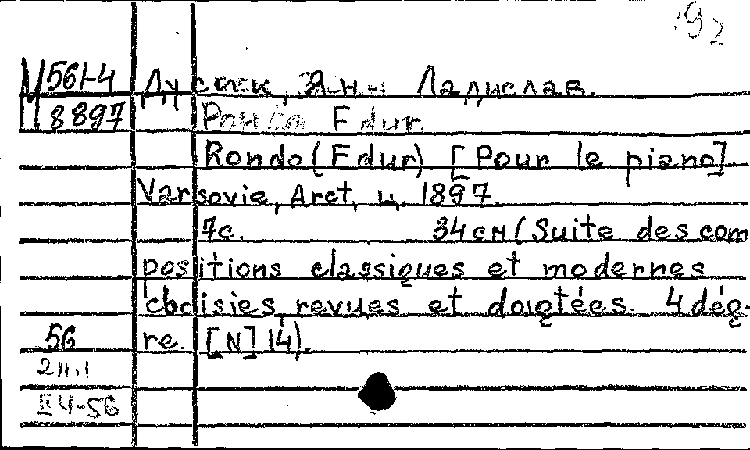 92
М 561-4 Дуссек, Ян Ладислав.
П 8897 Рондо F dur.
Rondo (F dur) [Pour le piano]
Varsovie, Arct, ц. 1897.
7с. 34 см (Suite des com
positions classiques et modernes
choisies revues et doigtées. 4 dég-
56 re. [N] 14).
2 н.1
II 4-56